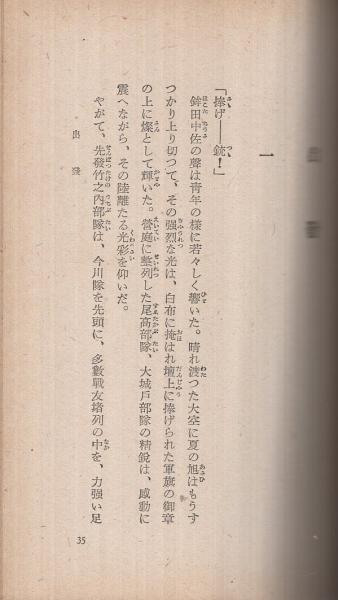 一
「捧げ――銃！」
鉾田中佐の聲は青年の樣に若々しく響いた。晴れ渡つた大空に夏の旭はもうす
つかり上り切つて、その强烈な光は、白布に掩はれ壇上に捧げられた軍旗の御章
の上に燦として輝いた。營庭に整列した尾高部隊、大城戶部隊の精銳は、感動に
震へながら、その陸離たる光彩を仰いだ。
やがて、先發竹之內部隊は、今川隊を先頭に、多數戰友堵列の中を、力强い足
出發
35